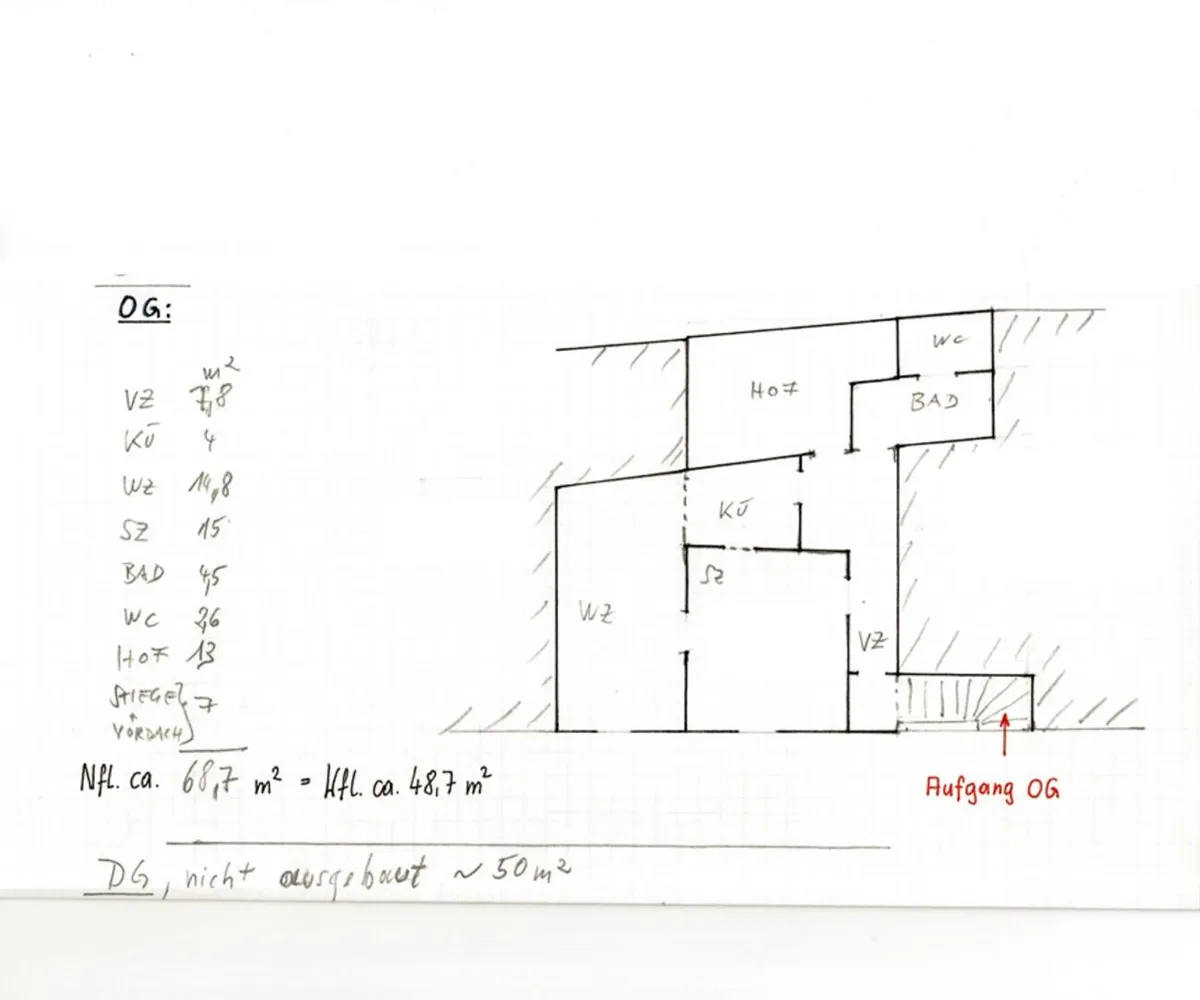 OG:
m²
VZ 7,8
KÜ 4
WZ 14,8
SZ 15
BAD 4,5
WC 2,6
HOF 13
STIEGE
+ 7
VORDACH
Nfl. ca. 68,7 m² = Wfl. ca. 48,7 m²
DG, nicht ausgebaut ~ 50 m²
WC
HOF
BAD
KÜ
SZ
WZ
VZ
Aufgang OG